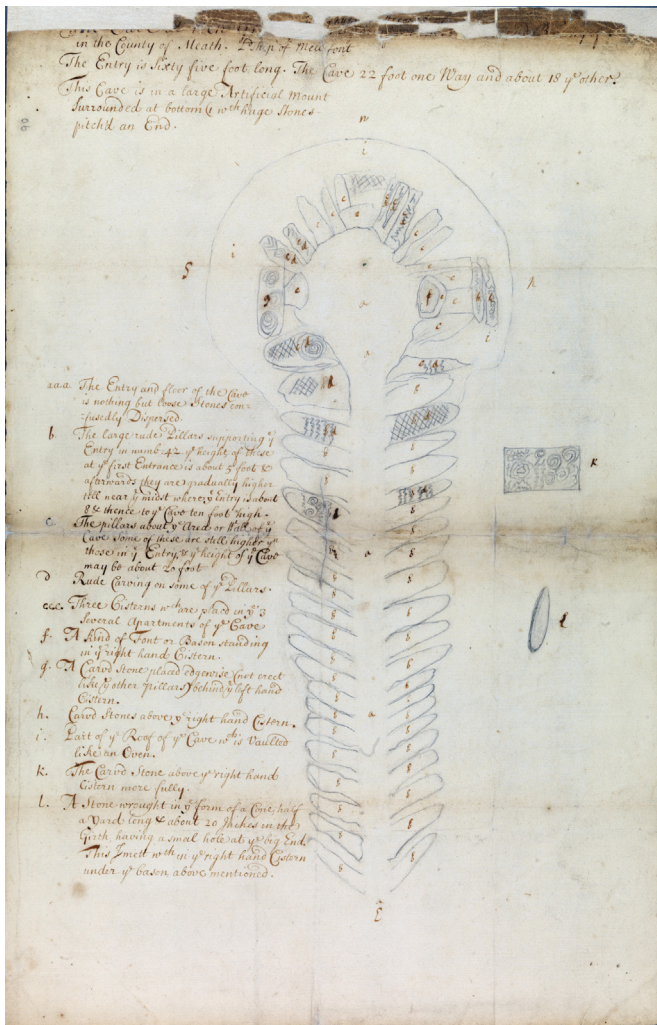 in the County of Meath.
The Entry is Sixty five foot long. The Cave 22 foot one Way and about 18 yᵉ other.
This Cave is in a large Artificial Mount
Surrounded at bottom wᵗʰ huge Stones
pitch'd an End.
90
w
i
i
S
aaa The Entry and floor of the Cave
is nothing but loose Stones con-
-fusedly Dispersed.
b. The large rude Pillars supporting yᵉ
Entry in numb: 42 yᵉ height of these
at yᵉ first Entrance is about 5 foot &
afterwards they are gradually higher
till near yᵉ midst where yᵉ Entry is about
8 & thence to yᵉ Cave ten foot high-
c. The pillars about yᵉ Area or Wall of yᵉ
Cave some of these are still higher yⁿ
those in yᵉ Entry, & yᵉ height of yᵉ Cave
may be about 20 foot
d Rude Carving on some of yᵉ Pillars.
eee. Three Cisterns wᶜʰ are placd in yᵉ 3
Several Apartments of yᵉ Cave
f. A kind of Font or Bason standing
in yᵉ right hand Cistern.
g. A Carvd Stone placed edgewise (not erect
like yᵉ other pillars) behind yᵉ left hand
Cistern.
h. Carvd Stones above yᵉ right hand Cistern.
i. Part of yᵉ Roof of yᵉ Cave wᶜʰ is Vaulted
like an Oven.
k. The Carvd Stone above yᵉ right hand
Cistern more fully.
l. A Stone wrought in yᵉ form of a Cone, half
a Yard long & about 20 Inches in the
Girth having a smal hole at yᵉ big End.
This I mett wᵗʰ in yᵉ right hand Cistern
under yᵉ bason above mentioned.
g
f
a
a
k
l
a
a
a
E